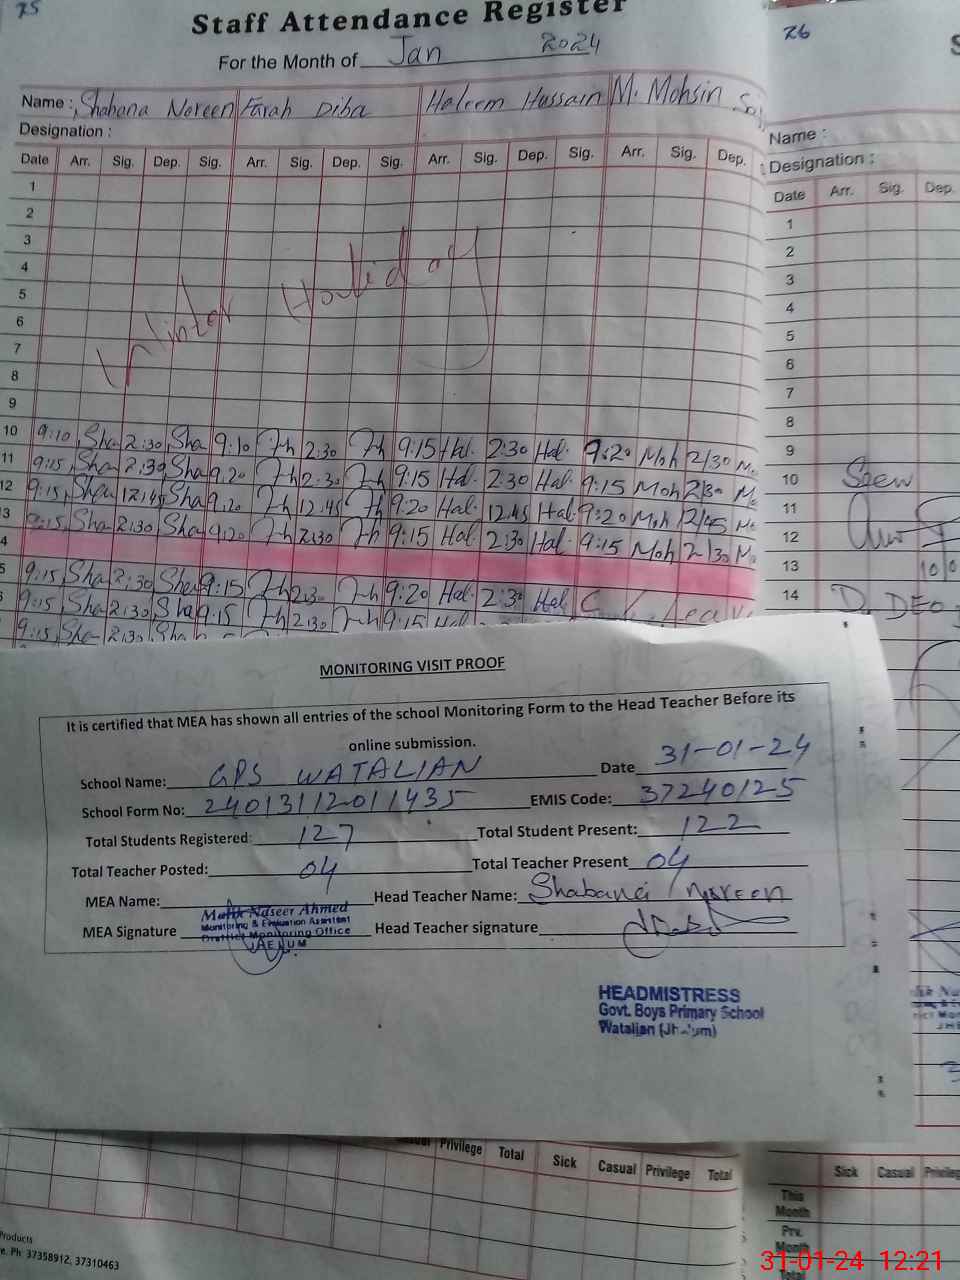 75
Staff Attendance Register
For the Month of Jan 2024
Name : Shabana Noreen Farah Diba Haleem Hussain M. Mohsin
Designation :
Date Arr. Sig. Dep. Sig. Arr. Sig. Dep. Sig. Arr. Sig. Dep. Sig. Arr. Sig. Dep.
1
2
3
4
5
6
7
8
9
Winter Holiday
10 9:10 Sha 2:30 Sha 9:10 Fh 2:30 Fh 9:15 Hal. 2:30 Hal. 9:20 Moh 2/30 Mo
11 9:15 Sha 2:30 Sha 9:20 Fh 2:30 Fh 9:15 Hal. 2:30 Hal. 9:15 Moh 2/30 Mo
12 9:15 Sha 12:45 Sha 9:20 Fh 12:45 Fh 9:20 Hal. 12:45 Hal. 9:20 Moh 12/45 Mo
3 9:15 Sha 2:30 Sha 9:20 Fh 2:30 Fh 9:15 Hal. 2:30 Hal. 9:15 Moh 2/30 Mo
4
5 9:15 Sha 2:30 Sha 9:15 Fh 2:30 Fh 9:20 Hal. 2:30 Hal Leave
9:15 Sha 2:30 Sha 9:15 Fh 2:30 Fh 9:15 Hal
9:15 Sha 2:30 Sha
76
Name :
Designation :
Date Arr. Sig. Dep.
1
2
3
4
5
6
7
8
9
10 Seen
11
12
13
14 D. DEO
MONITORING VISIT PROOF
It is certified that MEA has shown all entries of the school Monitoring Form to the Head Teacher Before its
online submission.
School Name: GPS WATALIAN Date 31-01-24
School Form No: 24013112011435 EMIS Code: 37240125
Total Students Registered: 127 Total Student Present: 122
Total Teacher Posted: 04 Total Teacher Present 04
MEA Name: Head Teacher Name: Shabana Noreen
Malik Naseer Ahmed
Monitoring & Evaluation Assistant
District Monitoring Office
JHELUM
MEA Signature Head Teacher signature
HEADMISTRESS
Govt. Boys Primary School
Watalian (Jhelum)
Privilege Total Sick Casual Privilege Total
Sick Casual Privileg
This
Month
Prv.
Month
Total
Products
e. Ph: 37358912, 37310463
31-01-24 12:21